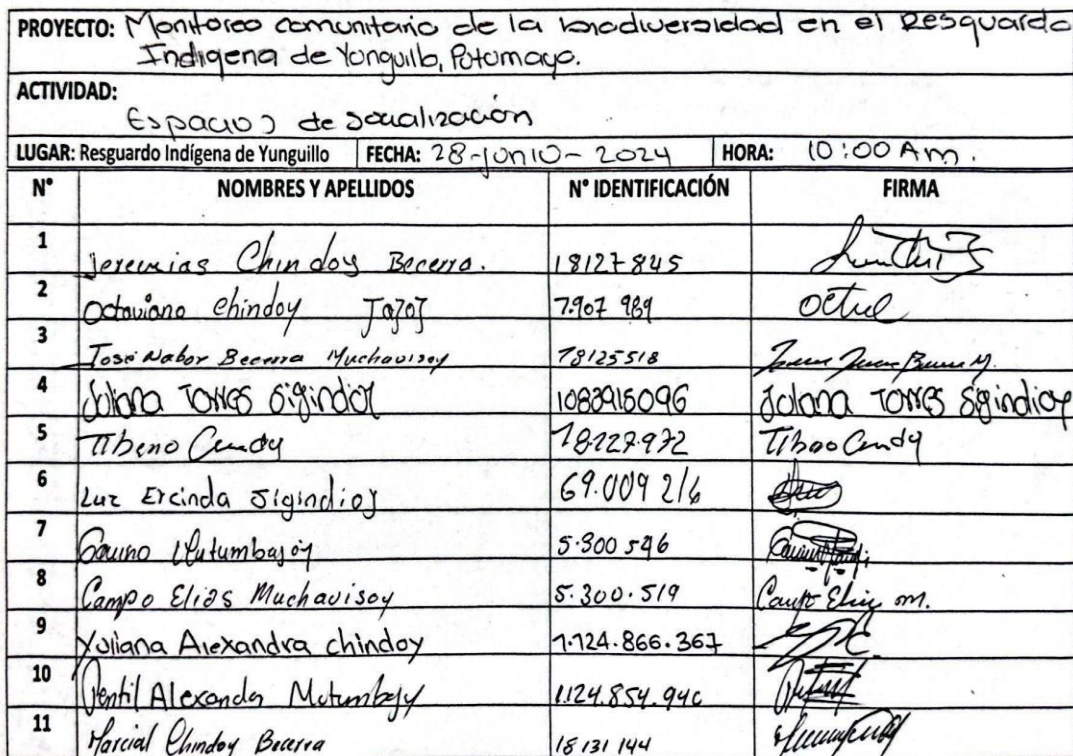 PROYECTO: Monitoreo comunitario de la biodiversidad en el Resguardo
Indigena de Yunguillo, Putumayo.
ACTIVIDAD:
Espacios de socialización
LUGAR: Resguardo Indígena de Yunguillo FECHA: 28-junio-2024 HORA: 10:00 Am.
N° NOMBRES Y APELLIDOS N° IDENTIFICACIÓN FIRMA
1 Jeremias Chindoy Becerra. 18127845
2 Octaviano chindoy Jajoj 7.907 989
3 Jose Nabor Becerra Muchavisoy 18125518
4 Torres 1083915096 Torres
5 18.227.972
6 Luz Ercinda Sigindioj 69.009 216
7 5.300 546
8 Campo Elias Muchavisoy 5.300.519 Campo Elias m.
9 Yuliana Alexandra chindoy 1.124.866.367
10 Alexander 1.124.854.940
11 Marcial Chindoy Becerra 18 131 144